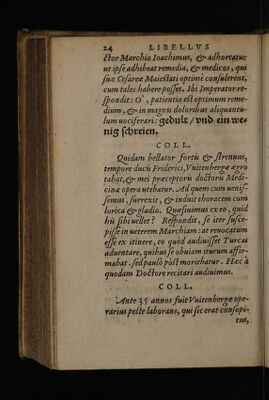 24 LIBELLVS
ctor Marchio Ioachimus, & adhortatur
ut ipse adhibeat remedia, & medicos, qui
suæ Cesareæ Maiestati optimè consulerent,
cum tales habere posset. Ibi Imperator re-
spondit: O, patientia est optimum reme-
dium, & in magnis doloribus aliquantu-
lum uociferari: gedult / vnd ein we-
nig schreien.
COLL.
Quidam bellator fortis & strenuus,
tempore ducis Friderici, Vuitenbergæ ægro
tabat, & mei præceptoris doctoris Medi-
cinæ opera utebatur. Ad quem cum uenis-
semus, surrexit, & induit thoracem cum
lorica & gladio. Quæsiuimus ex eo, quid
hic sibi uellet? Respondit, se iter susce-
pisse in ueterem Marchiam: at reuocatum
esse ex itinere, eo quòd audiuisset Turcas
aduentare, quibus se obuiam iturum affir-
mabat. sed paulò pòst moriebatur. Hæc à
quodam Doctore recitari audiuimus.
COLL.
Ante 35 annos fuit Vuitenbergæ ope-
rarius peste laborans, qui sic erat consopi-
tus,